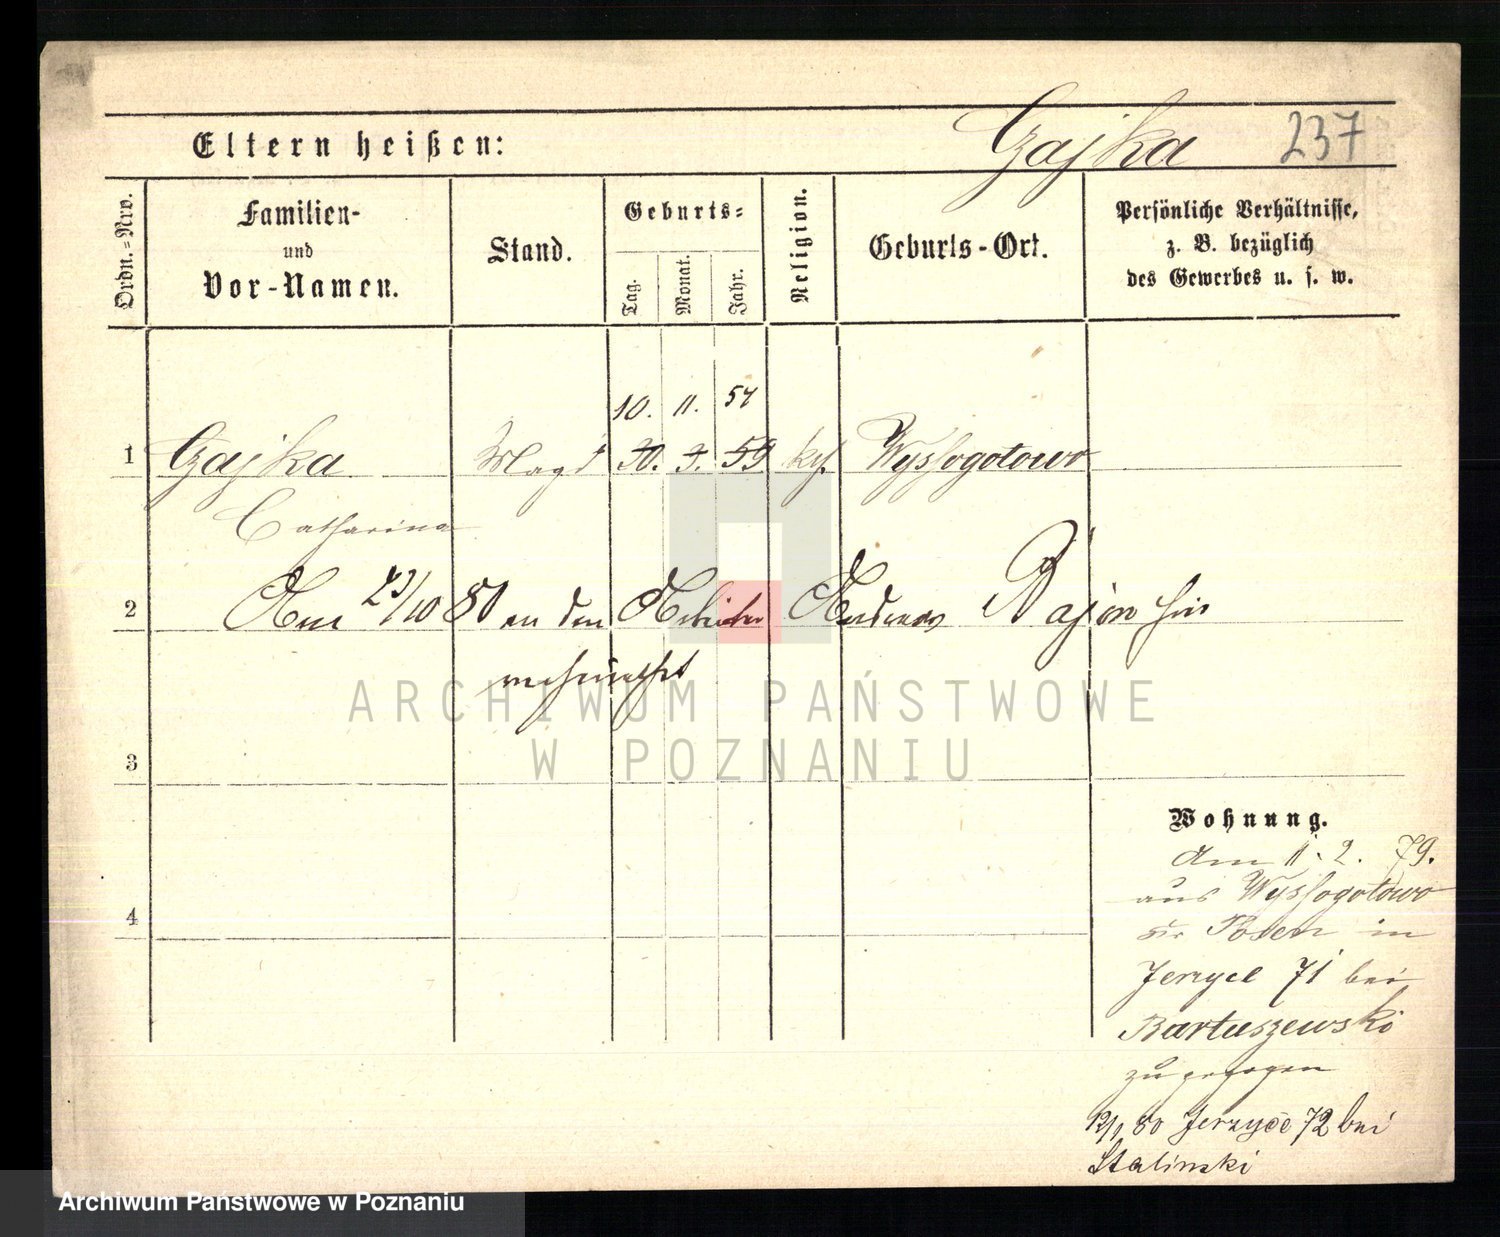 Gajka 237
Eltern heißen:
Ordn.=Nro.
Familien-
und
Vor-Namen.
Stand.
Geburts=
Tag.
Monat.
Jahr.
Religion.
Geburts-Ort.
Persönliche Verhältnisse,
z. B. bezüglich
des Gewerbes u. s. w.
10. 11. 57
1 Gajka Magd 30. 3. 59 kth. Wyssogotowo
Catharina
2 Am 23/10 80 an den Arbeiter Andreas hier
verheirathet
3
4
Wohnung.
Am 11. 2. 79.
aus Wyssogotowo
Kr Posen in
Jerzyce 71 bei
Bartuszewski
zugezogen
12/1 80 Jerzyce 72 bei
Stalinski
ARCHIWUM PAŃSTWOWE
W POZNANIU
Archiwum Państwowe w Poznaniu